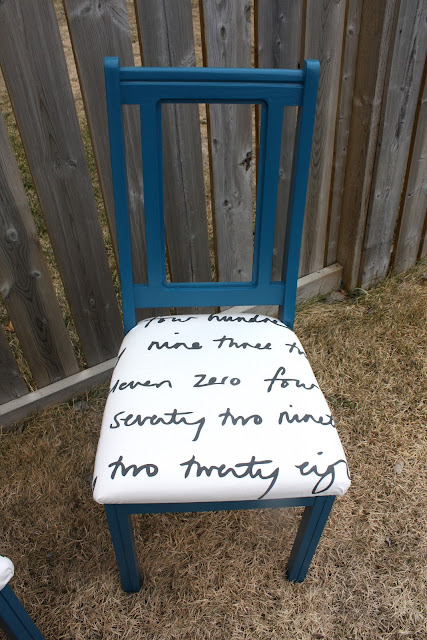 four hundre
nine three
eleven zero four
seventy two nine
two twenty eig